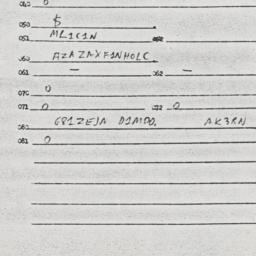 040 0
050 $
051 MRICIN 052
060 AZAZAXFINHOLC
061 — 062 —
070 0
071 0 072 0
080 G81ZEJA DIMDO. AK3RN
081 0